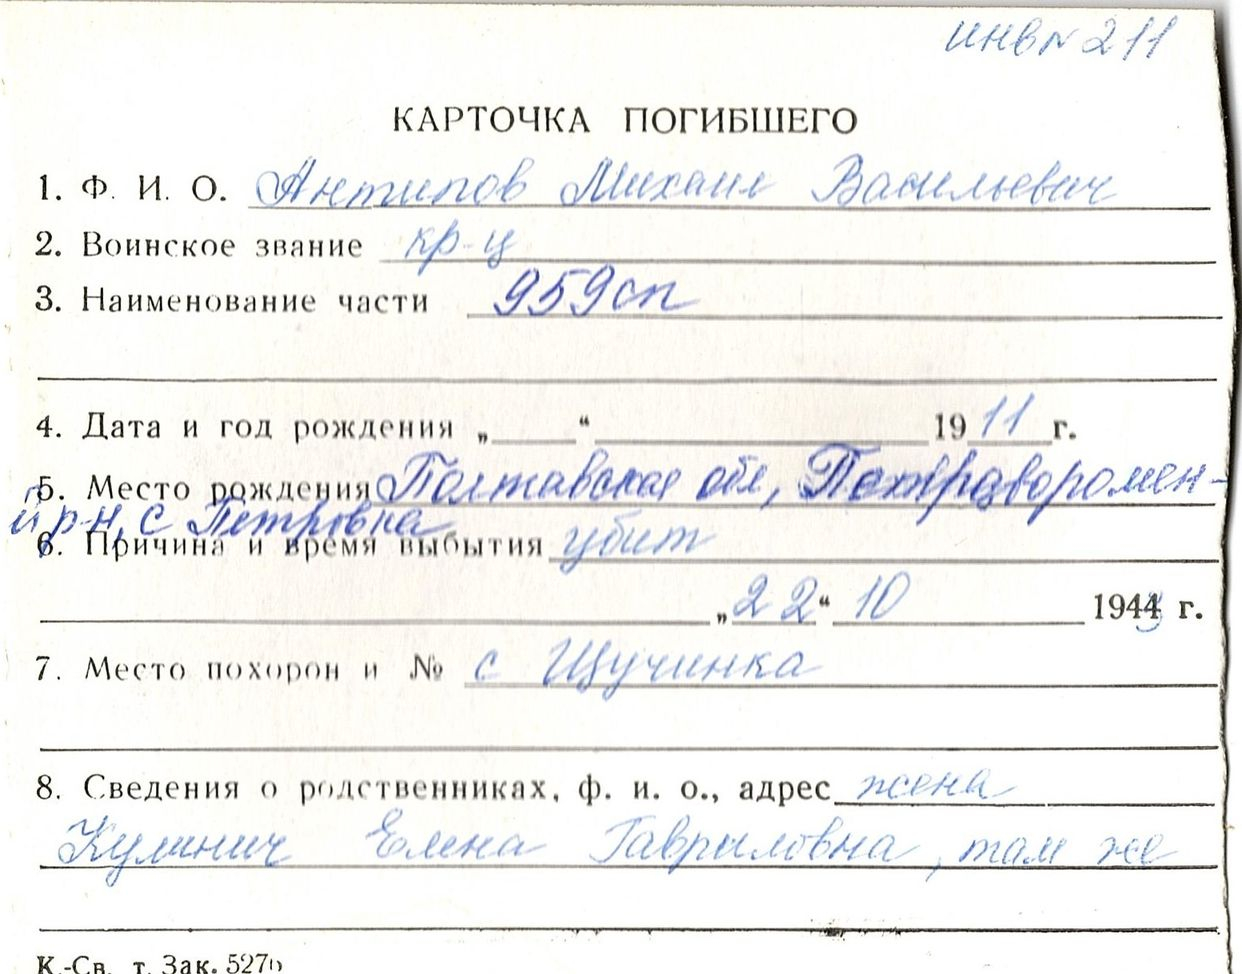 инв № 211
КАРТОЧКА ПОГИБШЕГО
1. Ф. И. О. Антипов Михаил Васильевич
2. Воинское звание кр-ц
3. Наименование части 959сп
4. Дата и год рождения „ “ 1911 г.
5. Место рождения Полтавская обл, Петраворомен-
й р-н, с Петровка
6. Причина и время выбытия убит
„22“ 10 1943 г.
7. Место похорон и № с Щучинка
8. Сведения о родственниках, ф. и. о., адрес жена
Кулинич Елена Гавриловна, там же
К.-Св. т. Зак. 527